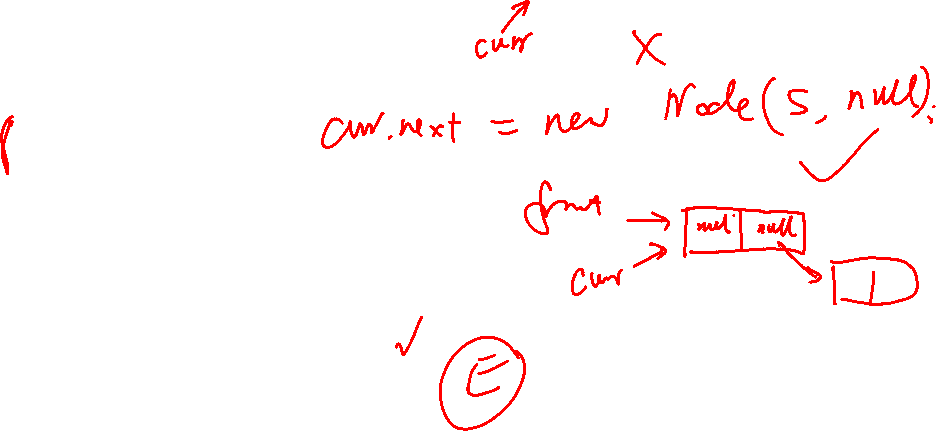 curr
X
curr.next = new Node(S, null);
front
null null
curr
E